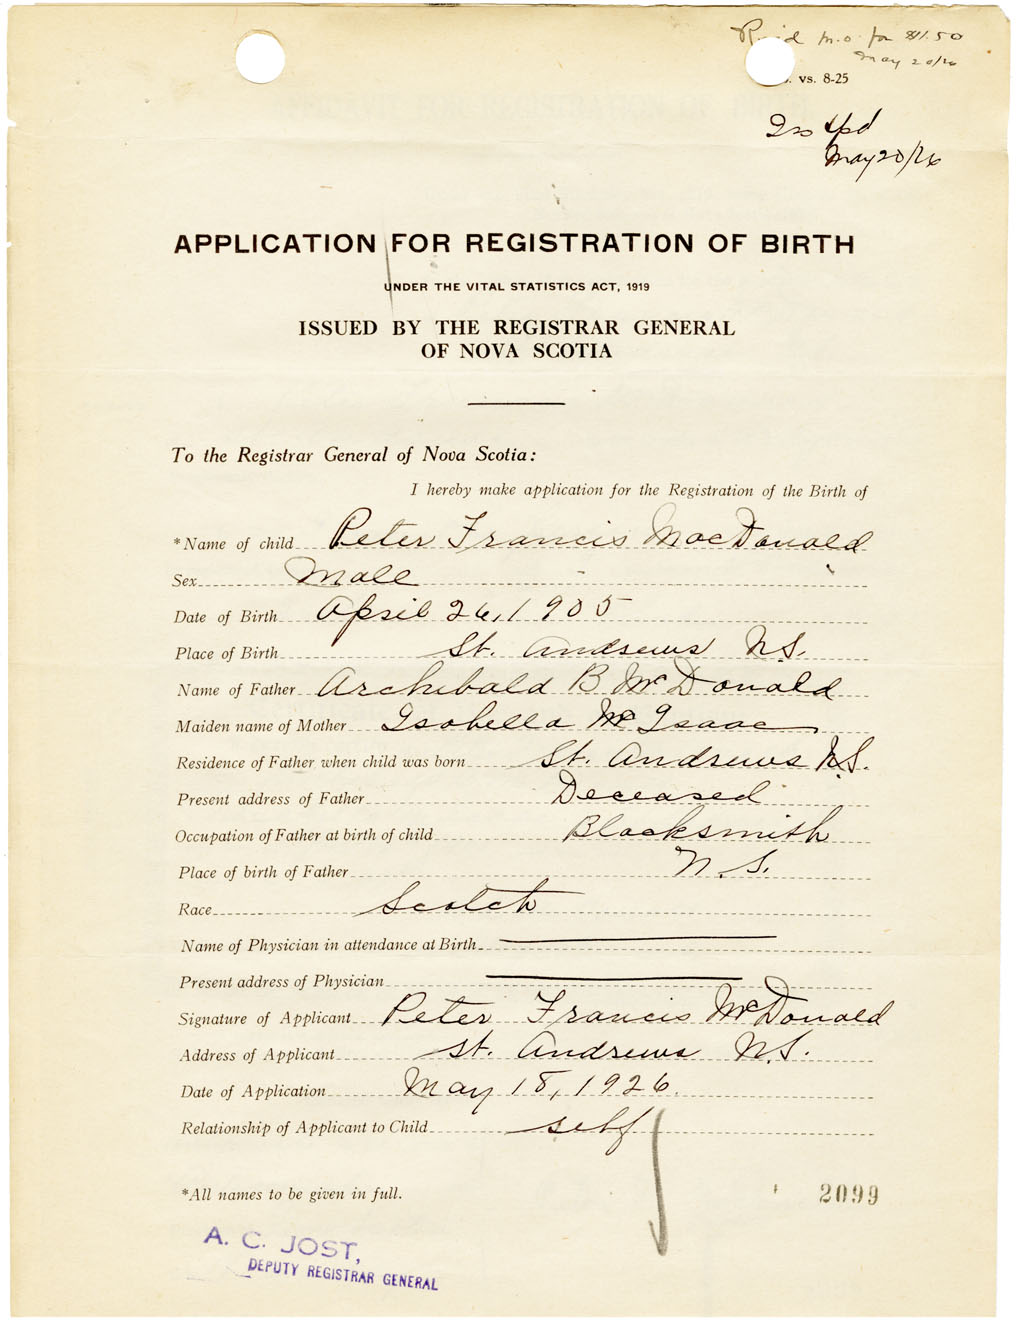 Rec'd M.O. for $1.50
May 20/26
. vs. 8-25
Iss
May 20/26
APPLICATION FOR REGISTRATION OF BIRTH
UNDER THE VITAL STATISTICS ACT, 1919
ISSUED BY THE REGISTRAR GENERAL
OF NOVA SCOTIA
To the Registrar General of Nova Scotia:
I hereby make application for the Registration of the Birth of
*Name of child Peter Francis MacDonald
Sex Male
Date of Birth April 26, 1905
Place of Birth St. Andrews N.S.
Name of Father Archibald B McDonald
Maiden name of Mother Isabella McIsaac
Residence of Father when child was born St. Andrews N.S.
Present address of Father Deceased
Occupation of Father at birth of child Blacksmith
Place of birth of Father N.S.
Race Scotch
Name of Physician in attendance at Birth
Present address of Physician
Signature of Applicant Peter Francis McDonald
Address of Applicant St. Andrews N.S.
Date of Application May 18, 1926.
Relationship of Applicant to Child self
*All names to be given in full.
2099
A. C. JOST,
DEPUTY REGISTRAR GENERAL